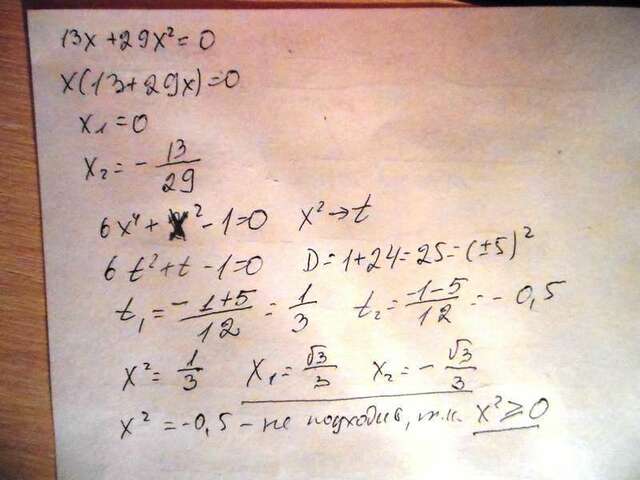 13x + 29x² = 0
x(13 + 29x) = 0
x₁ = 0
x₂ = - 13/29
6x⁴ + x² - 1 = 0 x² → t
6t² + t - 1 = 0 D = 1 + 24 = 25 = (±5)²
t₁ = (-1+5)/12 = 1/3 t₂ = (-1-5)/12 = - 0,5
x² = 1/3 x₁ = √3/3 x₂ = - √3/3
x² = -0,5 - не подходит, т.к. x² ≥ 0